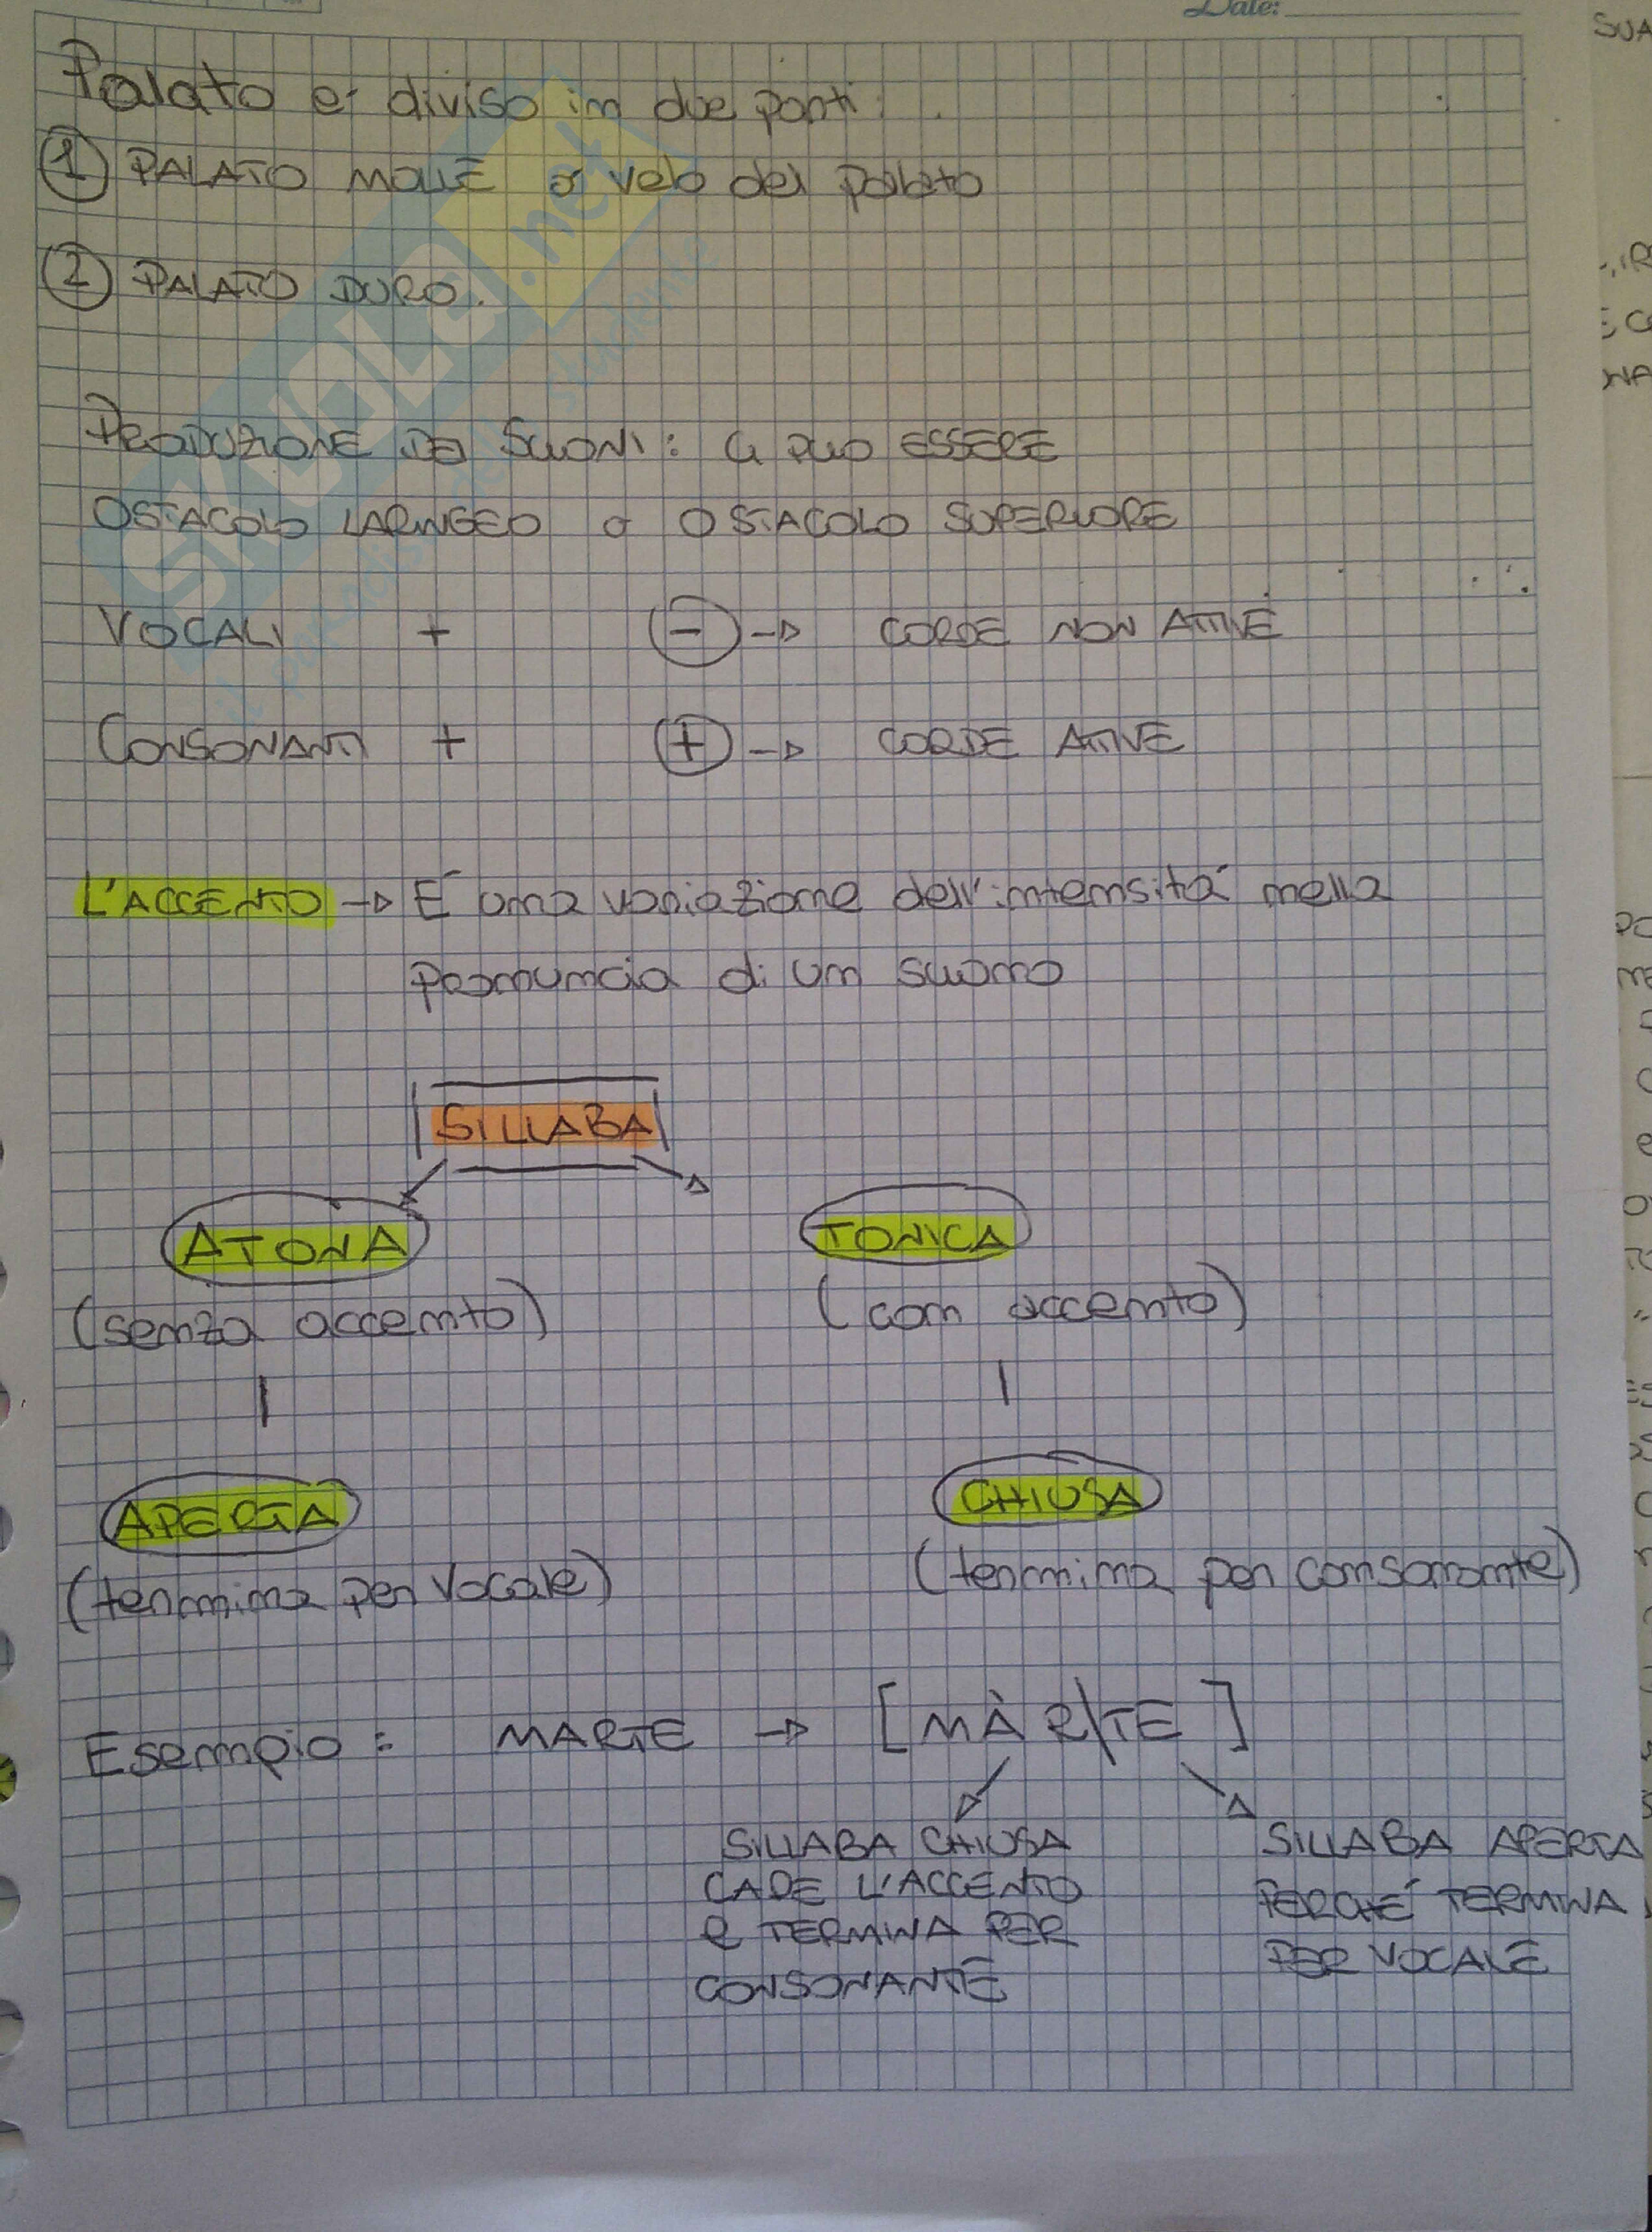 Date:
Palato e' diviso in due parti:
1 PALATO MOLLE o velo del palato
2 PALATO DURO.
PRODUZIONE DEI SUONI: CI PUO ESSERE
OSTACOLO LARINGEO o OSTACOLO SUPERIORE
VOCALI + - → CORDE NON ATTIVE
CONSONANTI + + → CORDE ATTIVE
L'ACCENTO → E' una variazione dell'intensità nella
pronuncia di un suono
SILLABA
ATONA TONICA
(senza accento) (con accento)
APERTA CHIUSA
(termina per vocale) (termina per consonante)
Esempio: MARTE → [MÀR|TE]
SILLABA CHIUSA SILLABA APERTA
CADE L'ACCENTO PERCHÉ TERMINA
e TERMINA PER PER VOCALE
CONSONANTE
SKUOLA.net
il paradiso dello studente
SUA